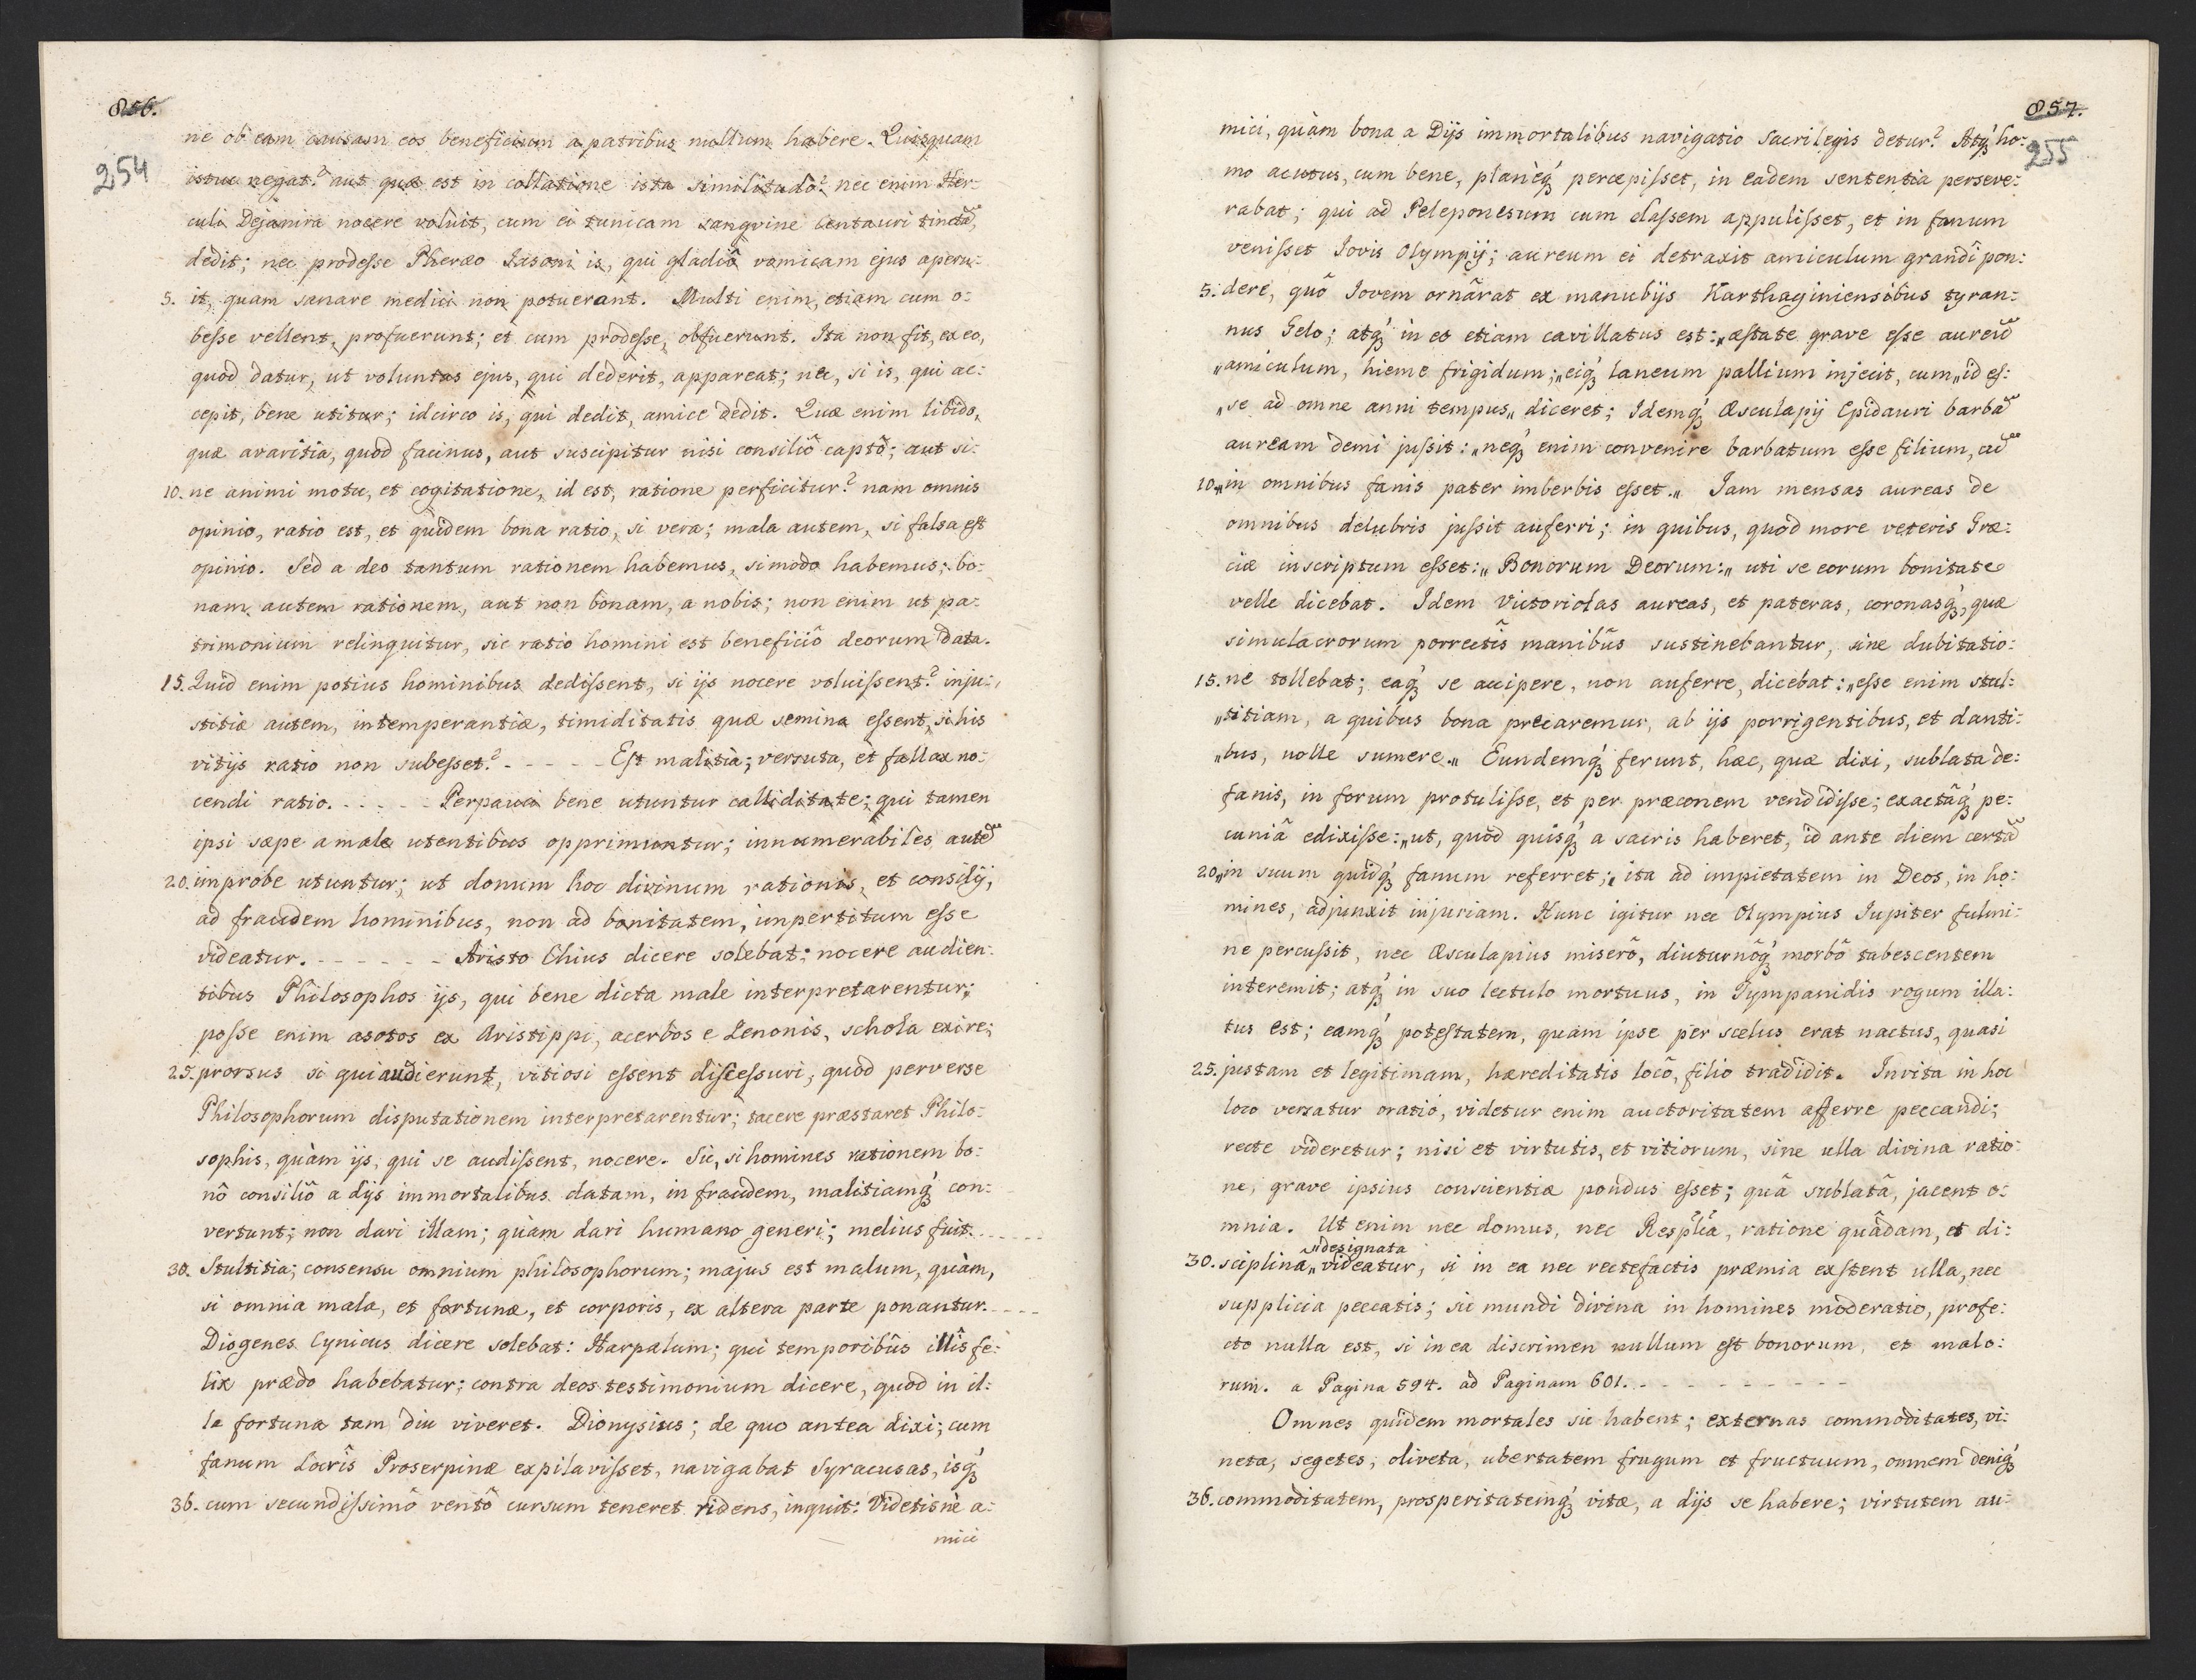 856.
254
ne ob eam causam eos beneficium a patribus nullum habere. Quisquam
istuc negat? aut quæ est in collatione ista similitudo? nec enim Her-
culi Dejanira nocere voluit, cum ei tunicam sangvine Centauri tinctã,
dedit; nec prodesse Pheræo Jasoni is, qui gladiô vomicam ejus aperu-
5. it, quam sanare medici non potuerant. Multi enim, etiam cum o:
besse vellent, profuerunt; et cum prodesse, obfuerunt. Ita non fit, ex eo,
quod datur, ut voluntas ejus, qui dederit, appareat; nec, si is, qui ac:
cepit, bene utitur; idcirco is, qui dedit, amice dedit. Quæ enim libido,
quæ avaritia, quod facinus, aut suscipitur nisi consiliô captô; aut si:
10. ne animi motu, et cogitatione, id est, ratione perficitur? nam omnis
opinio, ratio est, et quidem bona ratio, si vera; mala autem, si falsa est
opinio. Sed a deo tantum rationem habemus, si modo habemus; bo:
nam autem rationem, aut non bonam, a nobis; non enim ut pa:
trimonium relinquitur, sic ratio homini est beneficiô deorum data.
15. Quid enim potius hominibus dedissent, si ijs nocere voluissent? inju:
stitiæ autem, intemperantiæ, timiditatis quæ semina essent, si his
vitijs ratio non subesset? - - - - - Est malitia; versuta, et fallax no:
cendi ratio. - - - - - Perpauci bene utuntur calliditate; qui tamen
ipsi sæpe a male utentibus opprimuntur; innumerabiles autẽ
20. improbe utuntur; ut donum hoc divinum rationis, et consilij,
ad fraudem hominibus, non ad bonitatem, impertitum esse
videatur. - - - - - - Aristo Chius dicere solebat: nocere audien:
tibus Philosophos ijs, qui bene dicta male interpretarentur;
posse enim asotos ex Aristippi, acerbos e Zenonis, schola exire;
25. prorsus si qui audierunt, vitiosi essent discessuri, quod perverse
Philosophorum disputationem interpretarentur; tacere præstaret Philo:
sophis, quàm ijs, qui se audissent, nocere. Sic, si homines rationem bo:
nô consiliô a dijs immortalibus datam, in fraudem, malitiamq́ con:
vertunt; non dari illam; quàm dari humano generi; melius fuit. - - - - -
30. Stultitia; consensu omnium philosophorum; majus est malum, quàm,
si omnia mala, et fortunæ, et corporis, ex altera parte ponantur. - - - -
Diogenes Cynicus dicere solebat: Harpalum; qui temporibûs illîs fe:
lix prædo habebatur; contra deos testimonium dicere, quod in il:
la fortuna tam diu viveret. Dionysius; de quo antea dixi; cum
fanum Locrîs Proserpinæ expilavisset, navigabat Syracusas, isq́
36. cum secundissimô ventô cursum teneret ridens, inquit: Videtisnè a:
mici
857.
255
mici, quàm bona a Dijs immortalibus navigatio Sacrilegis detur? Atq́ ho:
mo acutus, cum bene, planèq́ percepisset, in eadem sententia perseve:
rabat; qui ad Peleponesum cum classem appulisset, et in fanum
venisset Jovis Olympij; aureum ei detraxit amiculum grandi pon:
5. dere, quô Jovem ornârat ex manubijs Karthaginiensibus tyran:
nus Gelo; atq́ in eo etiam cavillatus est: „æstate grave esse aureũ
„amiculum, hieme frigidum;„ eiq́ laneum pallium injecit, cum „id es:
„se ad omne anni tempus„ diceret; Idemq́ Æsculapij Epidauri barbã
auream demi jussit: „neq́ enim convenire barbatum esse filium, cũ
10. „in omnibus fanis pater imberbis esset.„ Jam mensas aureas de
omnibus delubris jussit auferri; in quibus, quod more veteris Græ:
ciæ inscriptum esset: „Bonorum Deorum:„ uti se eorum bonitate
velle dicebat. Idem Victoriolas aureas, et pateras, coronasq́, quæ
simulacrorum porrectîs manibûs sustinebantur, sine dubitatio:
15. ne tollebat; eaq́ se accipere, non auferre, dicebat: „esse enim stul:
„titiam, a quibus bona precaremur, ab ijs porrigentibus, et danti:
„bus, nolle sumere.„ Eundemq́ ferunt, hæc, quæ dixi, sublata de:
fanis, in forum protulisse, et per præconem vendidisse; exactâq́ pe:
cuniâ edixisse: „ut, quod quisq́ a sacris haberet, id ante diem certã
20. „in suum quidq́ fanum referret;„ ita ad impietatem in Deos, in ho:
mines, adjunxit injuriam. Hunc igitur nec Olympius Jupiter fulmi:
ne percussit, nec Æsculapius miserô, diuturnôq́ morbô tabescentem
interemit; atq́ in suo lectulo mortuus, in Tympanidis rogum illa:
tus est; eamq́ potestatem, quam ipse per scelus erat nactus, quasi
25. justam et legitimam, hæreditatis locô, filio tradidit. Invita in hoc
loco versatur oratio, videtur enim auctoritatem afferre peccandi;
recte videretur; nisi et virtutis, et vitiorum, sine ulla divina ratio:
ne, grave ipsius conscientiæ pondus esset; quâ sublatâ, jacent o:
mnia. Ut enim nec domus, nec Resplca, ratione quâdam, et di:
„designata
30. sciplina„ videatur, si in ea nec rectefactis præmia exstent ulla, nec
supplicia peccatis; sic mundi divina in homines moderatio, profe:
cto nulla est, si in ea discrimen nullum est bonorum, et malo:
rum. a Pagina 594. ad Paginam 601. - - - - - - - - -
Omnes quidem mortales sic habent; externas commoditates, vi:
neta, segetes, oliveta, ubertatem frugum et fructuum, omnem deniq́
36. commoditatem, prosperitatemq́ vitæ, a dijs se habere; virtutem au: